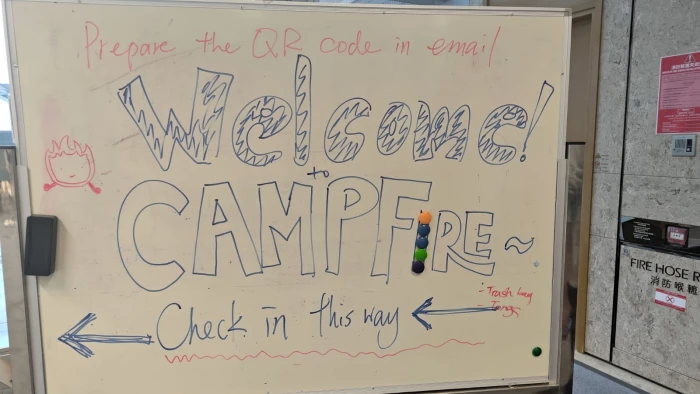 Prepare the QR code in email
Welcome!
to
CAMPFIRE ~
- Trash
Check in this way
FIRE HOSE R
消防喉轆